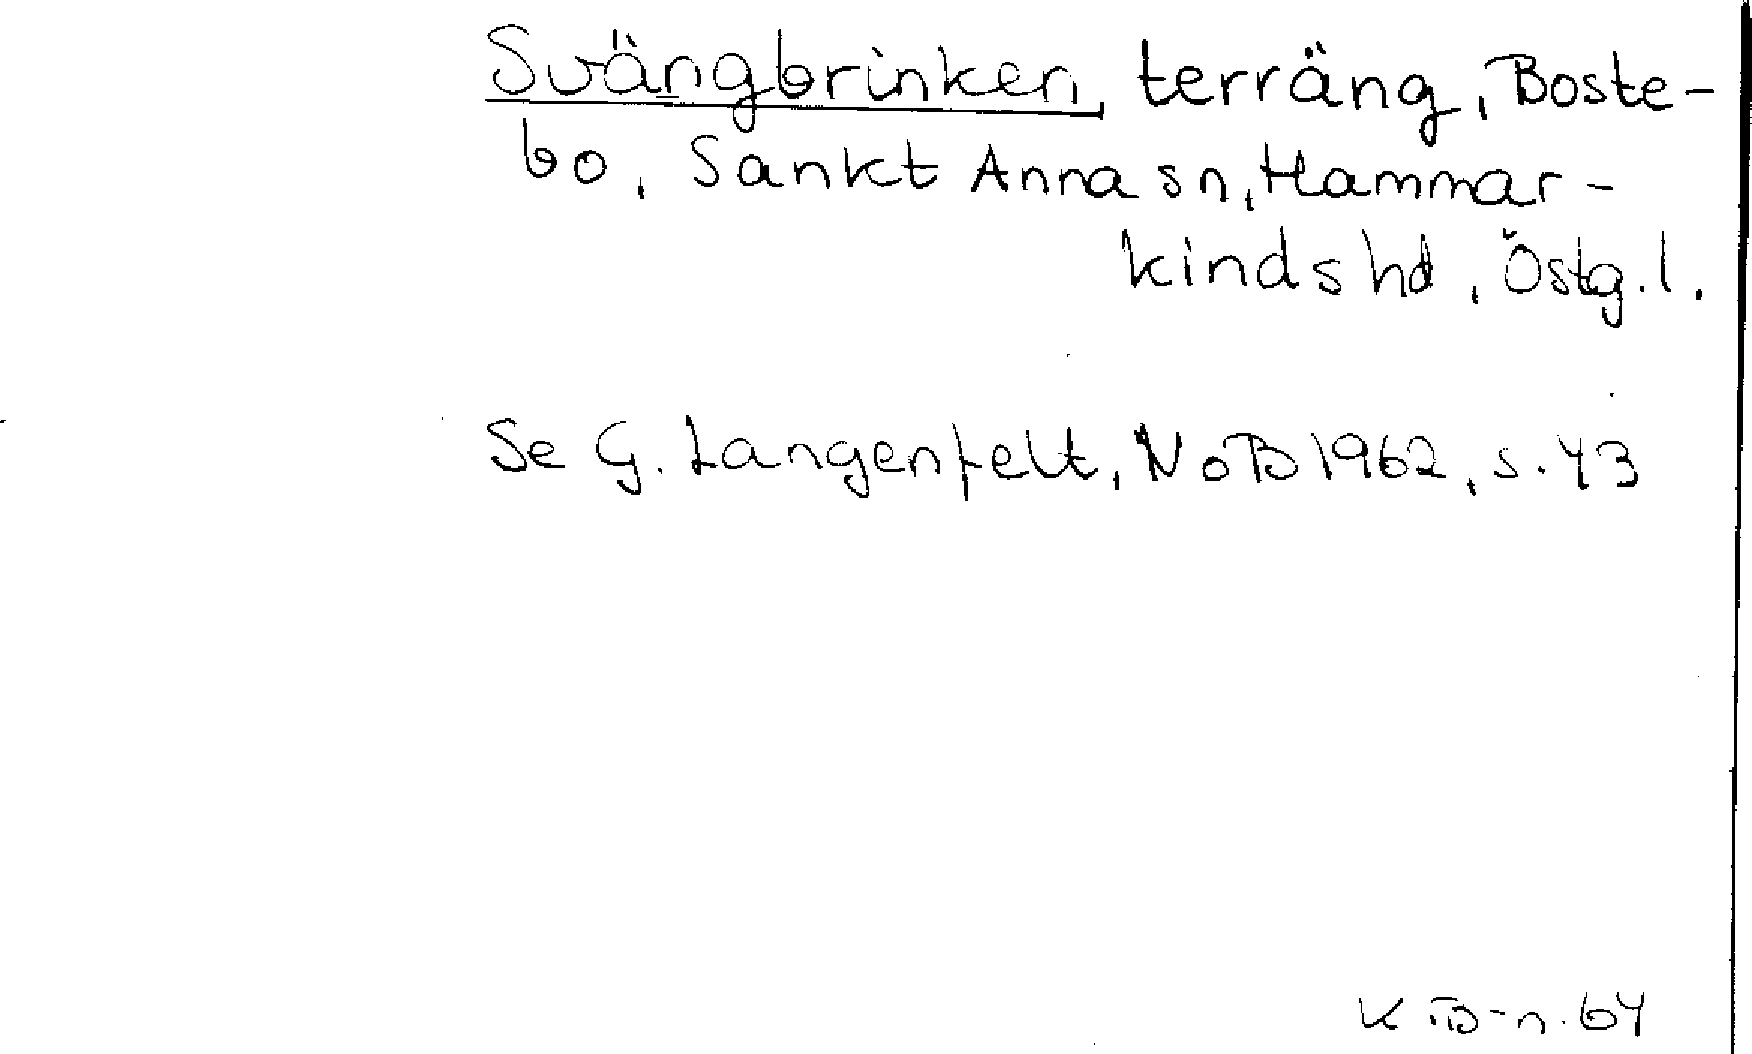 Svängbrinken, terräng, Boste-
bo, Sankt Anna sn, Hammar-
kinds hd, Östg. l.
Se G. Langenfelt, NoB 1962, s. 43
K. B-n. 64